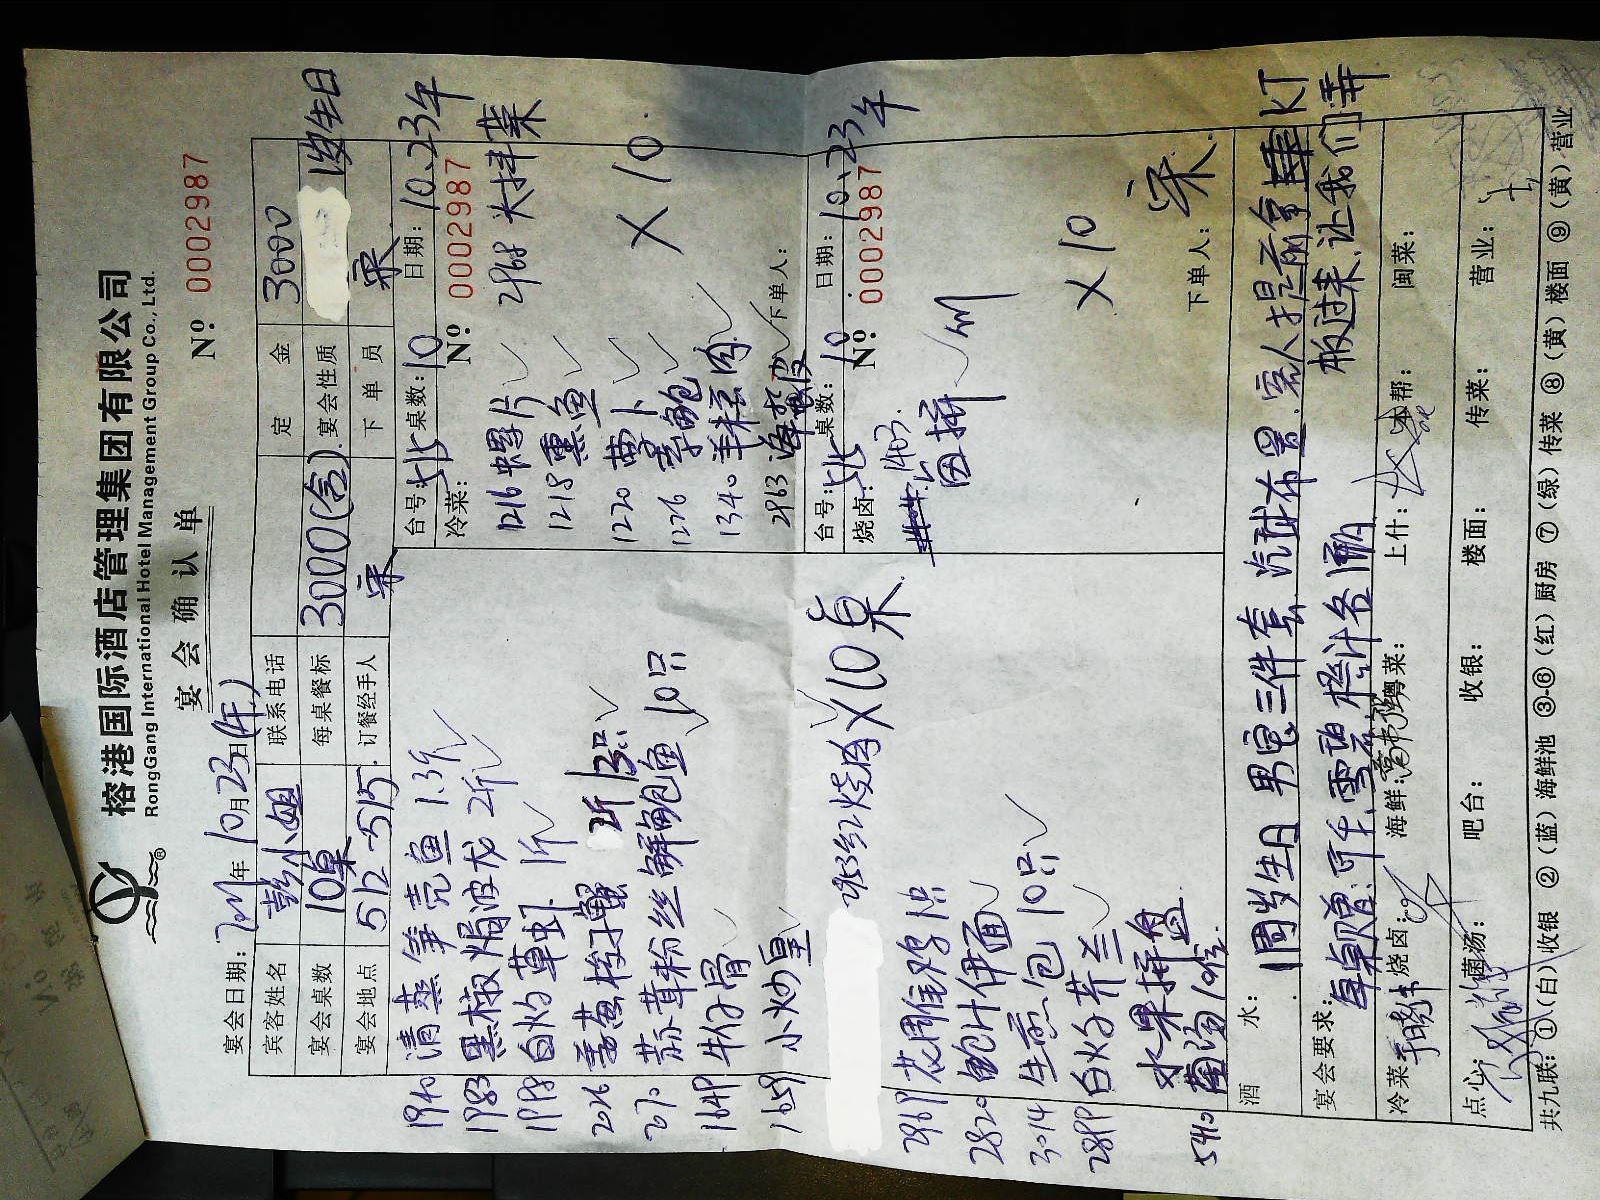 榕港国际酒店管理集团有限公司
RongGang International Hotel Management Group Co., Ltd.
®
宴会确认单
№: 0002987
宴会日期: 2011年10月23日(午)
宾客姓名 彭小姐 联系电话 定金 3000
宴会桌数 10桌 每桌餐标 3000(含) 宴会性质 1岁生日
宴会地点 512-515 订餐经手人 宋 下单员 宋
1940 清蒸笋壳鱼 1.3斤
1983 黑椒焗波龙 2斤
1998 白灼草虾 1斤
2026 姜葱梭子蟹 3只
2070 蒜茸粉丝鲜鲍鱼 10只
1649 牛仔骨
1659 小炒皇
2953 红烧肉 X10桌
2969 花雕醉鸡 1只
2820 鲍汁伊面
3014 生煎包 10只
2899 白灼芥兰
水果拼盘
5410 例汤 10位
台号: 桌数: 10 日期: 10.23午
冷菜: № 0002987
1216 螺片 2968 大拌菜
1218 熏鱼
1220 萝卜
1226 素鲍 X10.
1340 羊糕肉
2963 海蜇 下单人:
台号: 桌数: 10 日期: 10.23午
烧卤: № 0002987
1403.
卤拼
X10
下单人: 宋.
酒水: 1周岁生日 男宝三件套 汽球布置.客人提前拿KT
板过来.让我们弄
宴会要求: 每桌赠.可乐.雪碧.橙汁各1桶
冷菜: 烧卤: 海鲜: 粤菜: 上什: 本帮: 闽菜:
点心: 菌汤: 吧台: 收银: 楼面: 传菜: 营业:
共九联: ①(白)收银 ②(蓝)海鲜池 ③-⑥(红)厨房 ⑦(绿)传菜 ⑧(黄)楼面 ⑨(黄)营业